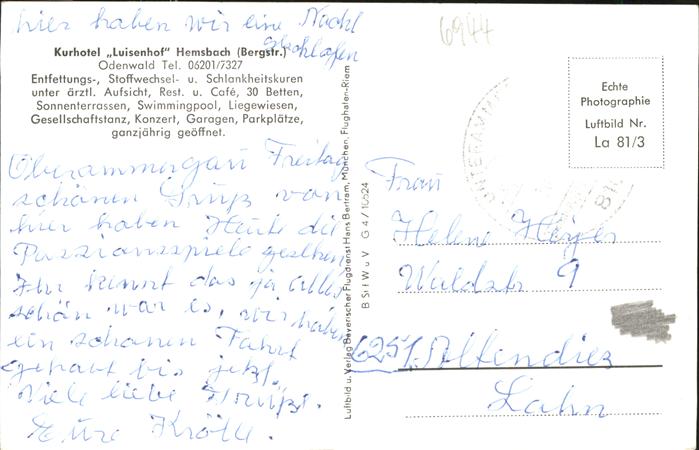 hier haben wir eine Nacht
geschlafen
6944
Kurhotel „Luisenhof" Hemsbach (Bergstr.)
Odenwald Tel. 06201/7327
Entfettungs-, Stoffwechsel- u. Schlankheitskuren
unter ärztl. Aufsicht, Rest. u. Café, 30 Betten,
Sonnenterrassen, Swimmingpool, Liegewiesen,
Gesellschaftstanz, Konzert, Garagen, Parkplätze,
ganzjährig geöffnet.
Oberammergau Freitag
schönen Gruß von
hier haben Heute die
Passionsspiele gesehen
Ihr kennt das ja alles
schön war es, wir haben
ein schönen Fahrt
gehabt bis jetzt.
Viele liebe Grüße.
Eure
Luftbild u. Verlag Bayerischer Flugdienst Hans Bertram, München, Flughafen-Riem
B St f W u V G 4/10624
Echte
Photographie
Luftbild Nr.
La 81/3
UNTERAMME
Frau
Helene
Waldstr 9
6251 Altendiez
Lahn